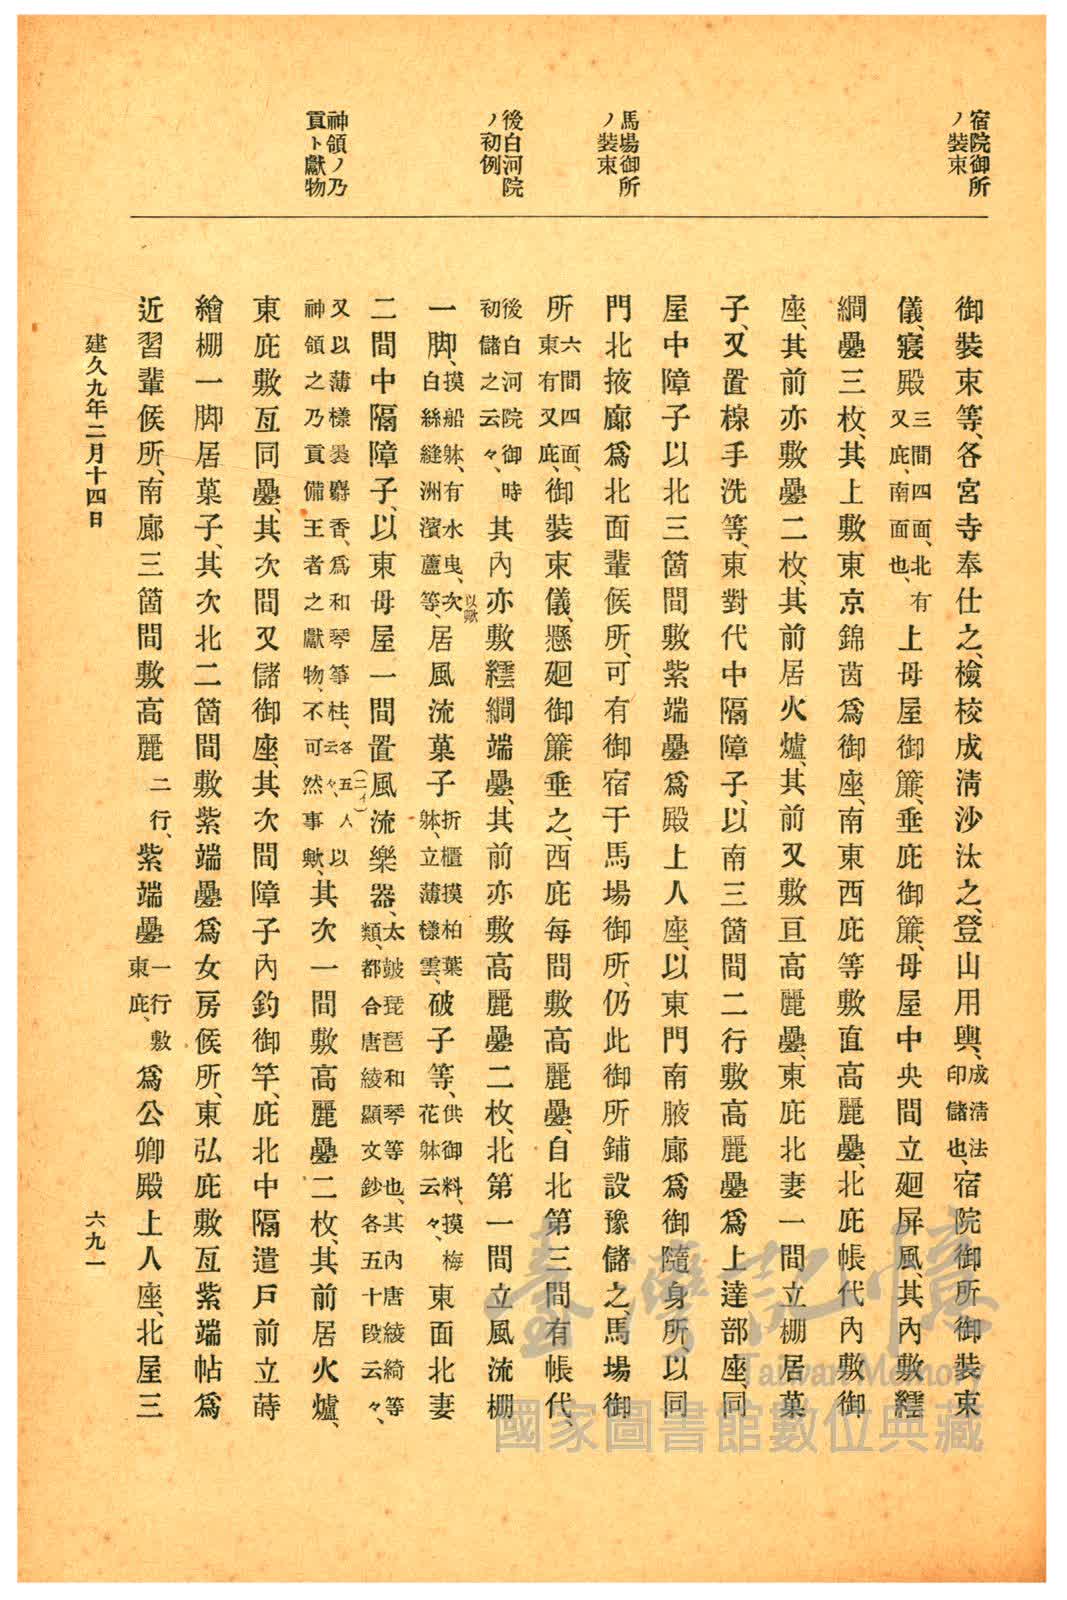 宿院御所
ノ裝束
馬場御所
ノ裝束
後白河院
ノ初例
神領ノ乃
貢ト獻物
御裝束等、各宮寺奉仕之、檢校成淸沙汰之、登山用輿、成淸法印儲也、宿院御所御裝束
儀、寢殿三間四面、北有又庇、南面也、上母屋御簾、垂庇御簾、母屋中央間立廻屛風、其內敷繧
繝疊三枚、其上敷東京錦茵爲御座、南東西庇等敷直高麗疊、北庇帳代內敷御
座、其前亦敷疊二枚、其前居火爐、其前又敷亘高麗疊、東庇北妻一間立棚居菓
子、又置楾手洗等、東對代中隔障子、以南三箇間二行敷高麗疊爲上達部座、同
屋中障子以北三箇間敷紫端疊爲殿上人座、以東門南腋廊爲御隨身所以同
門北掖廊爲北面輩候所、可有御宿于馬場御所、仍此御所鋪設豫儲之、馬場御
所六間四面、東有又庇、御裝束儀、懸廻御簾垂之、西庇每間敷高麗疊、自北第三間有帳代、
後白河院御時初儲之云々、其內亦敷繧繝端疊、其前亦敷高麗疊二枚、北第一間立風流棚
一脚、摸船躰、有水曳、次以歟白絲縫洲濱蘆等、居風流菓子折櫃摸柏葉躰、立薄樣雲、破子等、供御料、摸梅花躰云々、東面北妻
二間中隔障子、以東母屋一間置風流樂器、太皷琵琶和琴等也、其內唐綾綺等類、都合唐綾顯文鈔各五十段云々、
又以薄樣裹麝香、爲和琴箏柱、各五(二イ)人云々、以神領之乃貢備王者之獻物、不可然事歟、其次一間敷高麗疊二枚、其前居火爐、
東庇敷亙同疊、其次間又儲御座、其次間障子內釣御竿、庇北中隔遣戶前立蒔
繪棚一脚居菓子、其次北二箇間敷紫端疊爲女房候所、東弘庇敷亙紫端帖爲
近習輩候所、南廊三箇間敷高麗二行、紫端疊一行敷東庇、爲公卿殿上人座、北屋三
建久九年二月十四日
六九一
臺灣記憶
Taiwan Memory
國家圖書館數位典藏